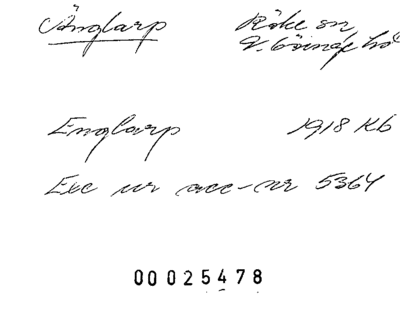 Änglarp
Röke sn
V. Göinge hd
Englarp
1918 Kb
Exc ur acc-nr 5364
00025478